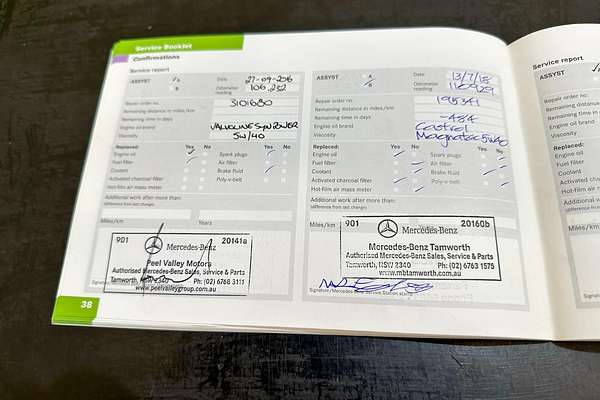 Service Booklet
Confirmations
Service report
ASSYST A B Date 27-09-2016
Odometer reading 106,232
Repair order no. 3101680
Remaining distance in miles/km
Remaining time in days
Engine oil brand VALVOLINE SYN POWER
Viscosity 5W/40
Replaced: Yes No Yes No
Engine oil Spark plugs
Fuel filter Air filter
Coolant Brake fluid
Activated charcoal filter Poly-v-belt
Hot-film air mass meter
Additional work after more than:
(difference from last change)
Miles/km Years
901 Mercedes-Benz 20141a
Peel Valley Motors
Authorised Mercedes-Benz Sales, Service & Parts
Tamworth, NSW 2340 Ph: (02) 6768 3111
www.peelvalleygroup.com.au
38
Service report
ASSYST A B Date 13/7/18
Odometer reading 110929
Repair order no. 195341
Remaining distance in miles/km
Remaining time in days -484
Engine oil brand Castrol
Viscosity Magnatec 5W40
Replaced: Yes No Yes No
Engine oil Spark plugs
Fuel filter Air filter
Coolant Brake fluid
Activated charcoal filter Poly-v-belt
Hot-film air mass meter
Additional work after more than:
(difference from last change)
Miles/km Years
901 20160b
Mercedes-Benz Tamworth
Authorised Mercedes-Benz Sales, Service & Parts
Tamworth, NSW 2340 Ph: (02) 6763 1575
www.mbtamworth.com.au
Signature/Mercedes-Benz Service Station stamp
Service report
ASSYST
Repair order no.
Remaining distance
Remaining time in
Engine oil brand
Viscosity
Replaced:
Engine oil
Fuel filter
Coolant
Activated charcoal
Hot-film air mass
Additional work
(difference from last
Miles/km